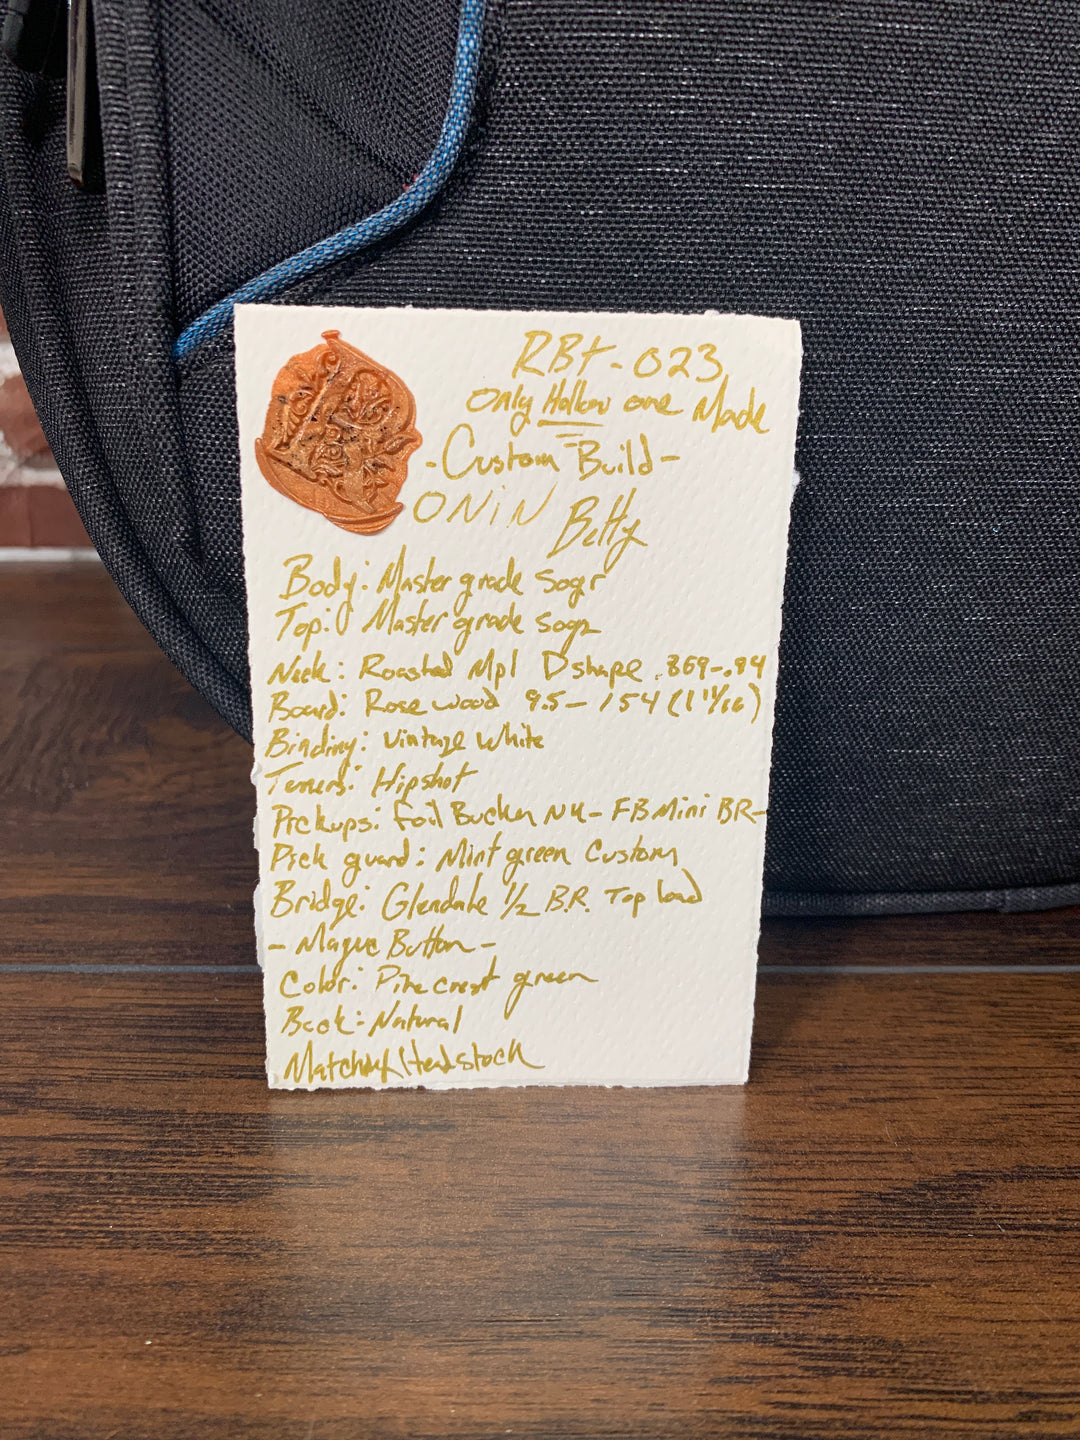 RBt-023
Only Hollow one Made
-Custom Build-
ONiN Betty
Body: Master grade Sogr
Top: Master grade sogr
Neck: Roasted Mpl D shape .869-.94
Board: Rose wood 9.5- 1.54 (1 11/16)
Binding: vintage white
Tuners: Hipshot
Pickups: Foil Bucker NK- FB Mini BR-
Pick guard: Mint green Custom
Bridge: Glendale 1/2 B.R. Top load
- Button -
Color: Pine crest green
Back: Natural
Matching Headstock